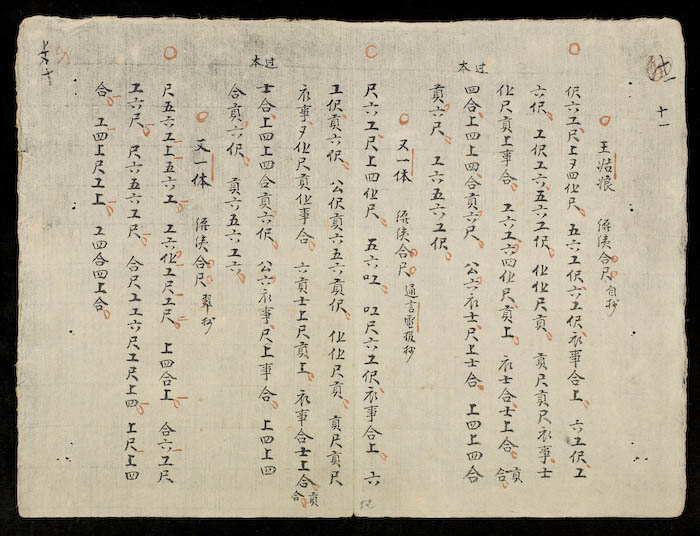 十一
合尺 自抄
伬六工尺上 四仩尺 五六工伬六工伬衣事合上 六工伬工
六伬 工伬工六五六工伬 仩仩尺貢 貢尺貢尺衣事士
仩尺貢上事合 工六工六四仩尺貢上 衣士合士上合 貢合
过本
四合上四上四合貢六尺 公六衣士尺上士合 上四上四合
貢六尺 工六五六工伬
又一体 合尺 通言電报抄
尺六工尺上四仩尺 五六 尺六工伬衣事合上 六
工伬貢六伬 公伬貢六五六貢伬 仩仩尺貢 貢尺貢尺
衣事 仩尺貢仩事合 六貢士上尺貢上 衣事合士上合 貢合
过本
士合上四上四合貢六伬 公六衣事尺上事合 上四上四
合貢六伬 貢六五六工六
又一体 合尺 翠抄
尺五六工上五六工 工六仩工尺工尺 上四合上 合六工尺
工六尺 尺六五六工尺 合尺工工六尺工尺上四 上尺上四
合 工四上尺工上 工四合四上合